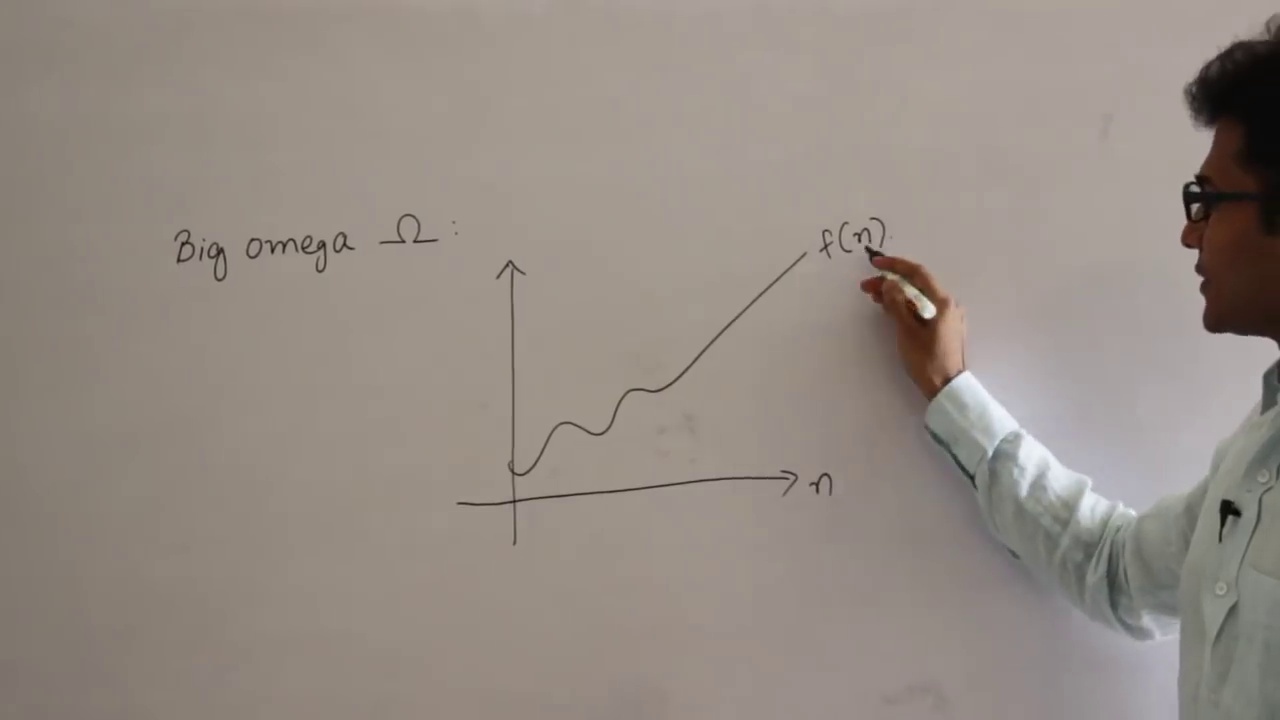 Big omega Ω:
f(n)
n